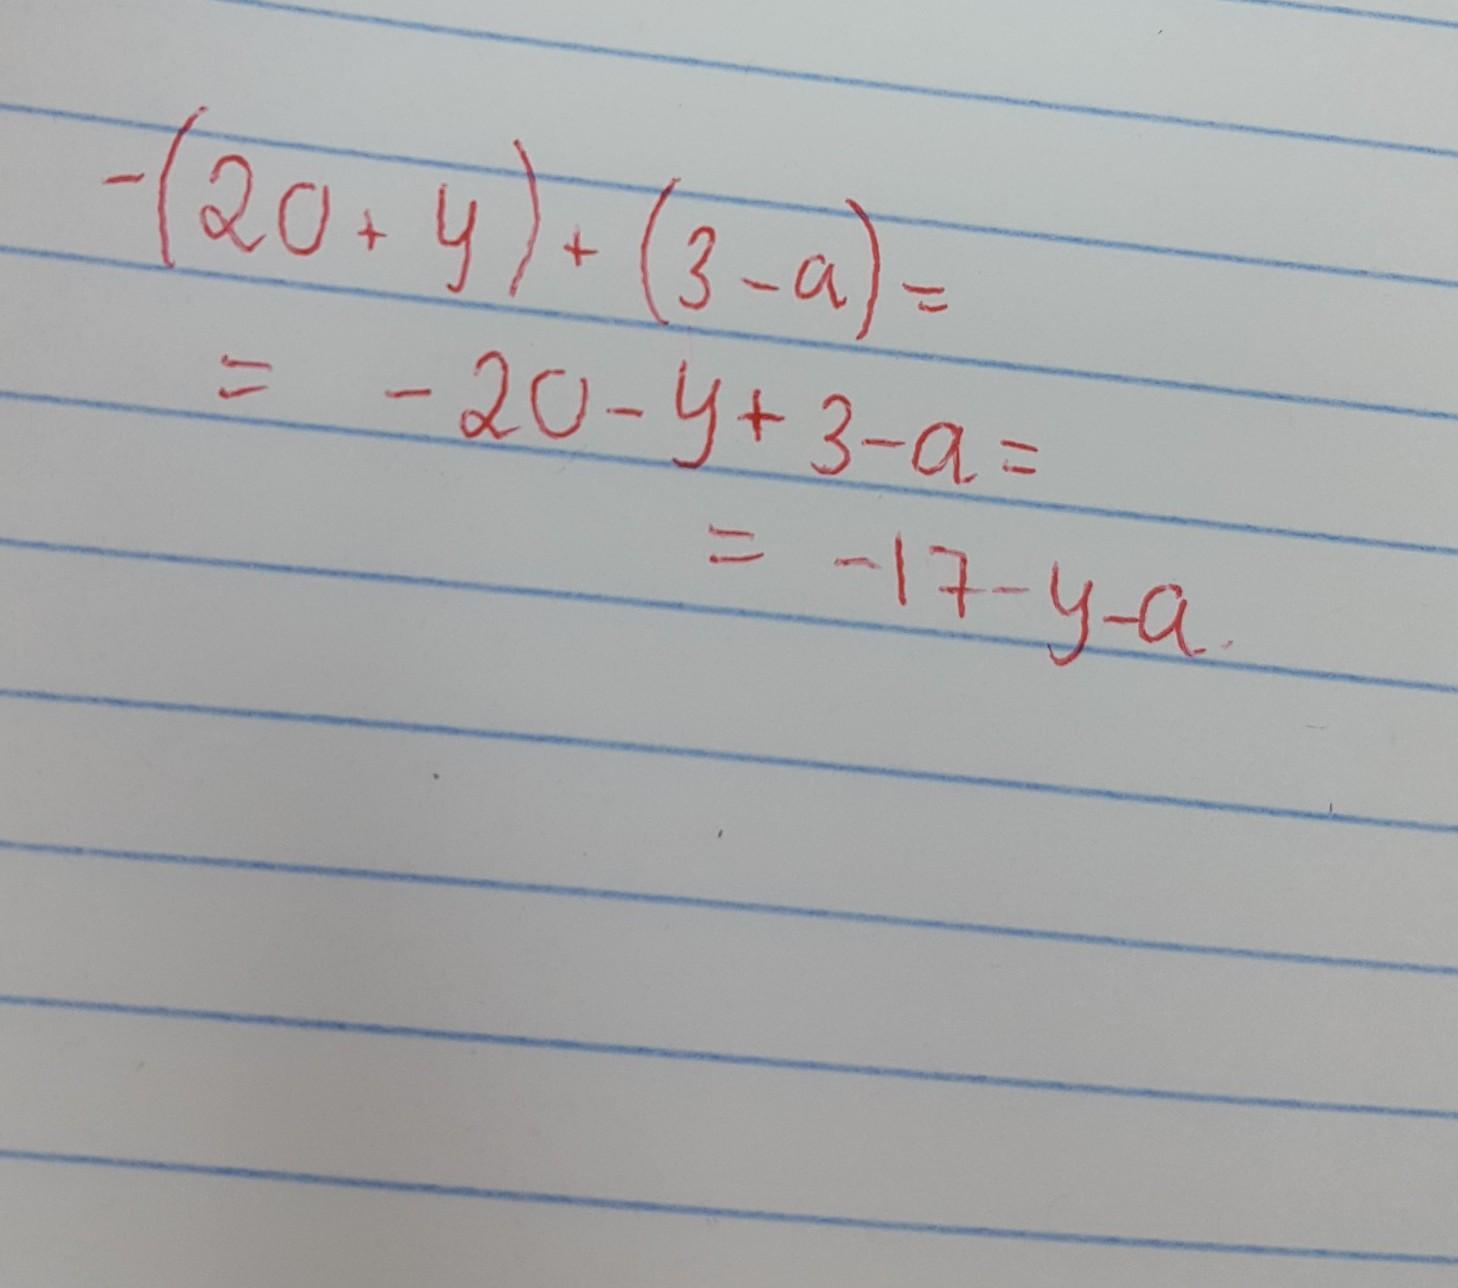 -(20+y)+(3-a)=
= -20-y+3-a=
= -17-y-a.